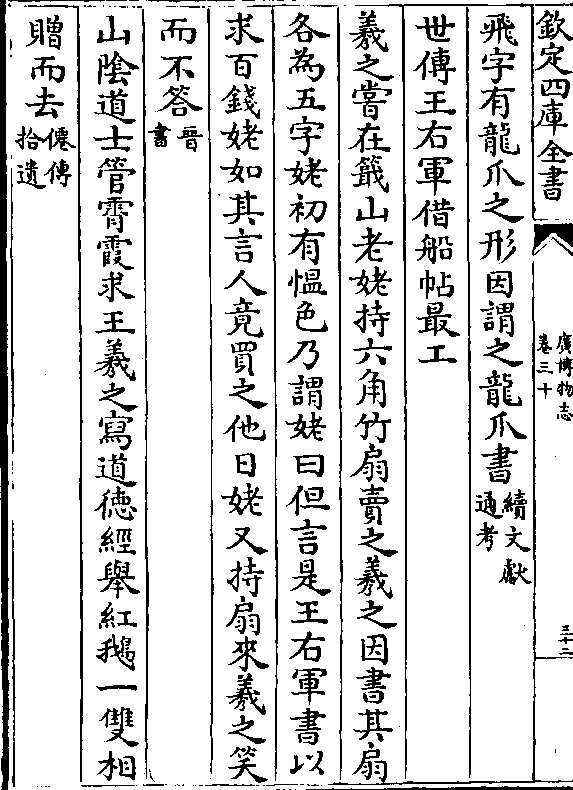 欽定四庫全書
廣博物志
卷三十
三十二
飛字有龍爪之形因謂之龍爪書續文獻通考
世傳王右軍借船帖最工
羲之嘗在蕺山老姥持六角竹扇賣之羲之因書其扇
各為五字姥初有慍色乃謂姥曰但言是王右軍書以
求百錢姥如其言人竟買之他日姥又持扇來羲之笑
而不答晉書
山陰道士管霄霞求王羲之寫道德經舉紅鵝一雙相
贈而去僊傳拾遺